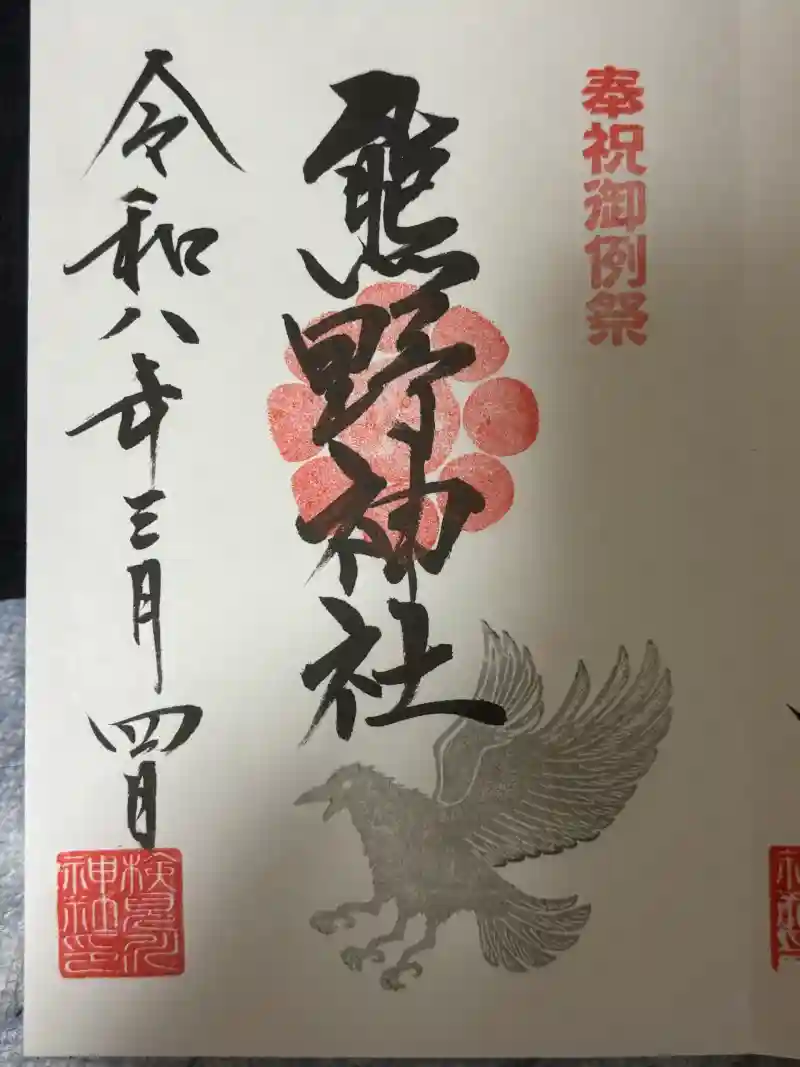 奉祝御例祭
熊野神社
令和八年三月四日
検見川
神社印